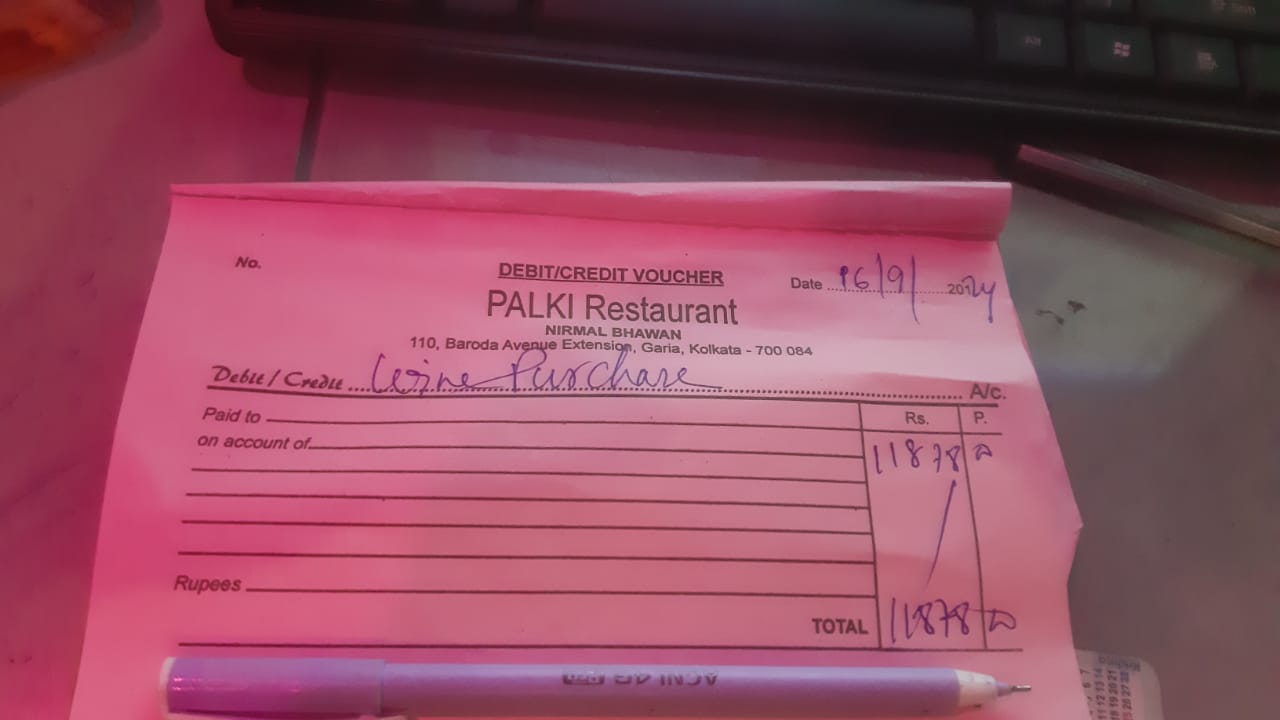 No.
DEBIT/CREDIT VOUCHER
Date 16/9/ 20124
PALKI Restaurant
NIRMAL BHAWAN
110, Baroda Avenue Extension, Garia, Kolkata - 700 084
Debit / Credit Wine Purchase A/c.
Paid to
Rs. P.
on account of
11878
Rupees
TOTAL 11878
Alt